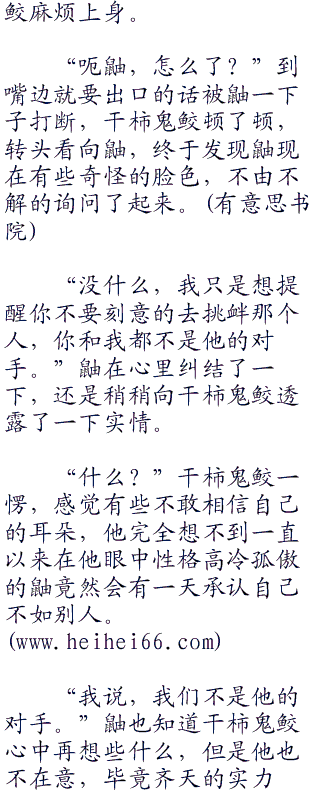 鲛麻烦上身。
“呃鼬，怎么了？”到
嘴边就要出口的话被鼬一下
子打断，干柿鬼鲛顿了顿，
转头看向鼬，终于发现鼬现
在有些奇怪的脸色，不由不
解的询问了起来。(有意思书
院)
“没什么，我只是想提
醒你不要刻意的去挑衅那个
人，你和我都不是他的对
手。”鼬在心里纠结了一
下，还是稍稍向干柿鬼鲛透
露了一下实情。
“什么？”干柿鬼鲛一
愣，感觉有些不敢相信自己
的耳朵，他完全想不到一直
以来在他眼中性格高冷孤傲
的鼬竟然会有一天承认自己
不如别人。
(www.heihei66.com)
“我说，我们不是他的
对手。”鼬也知道干柿鬼鲛
心中再想些什么，但是他也
不在意，毕竟齐天的实力